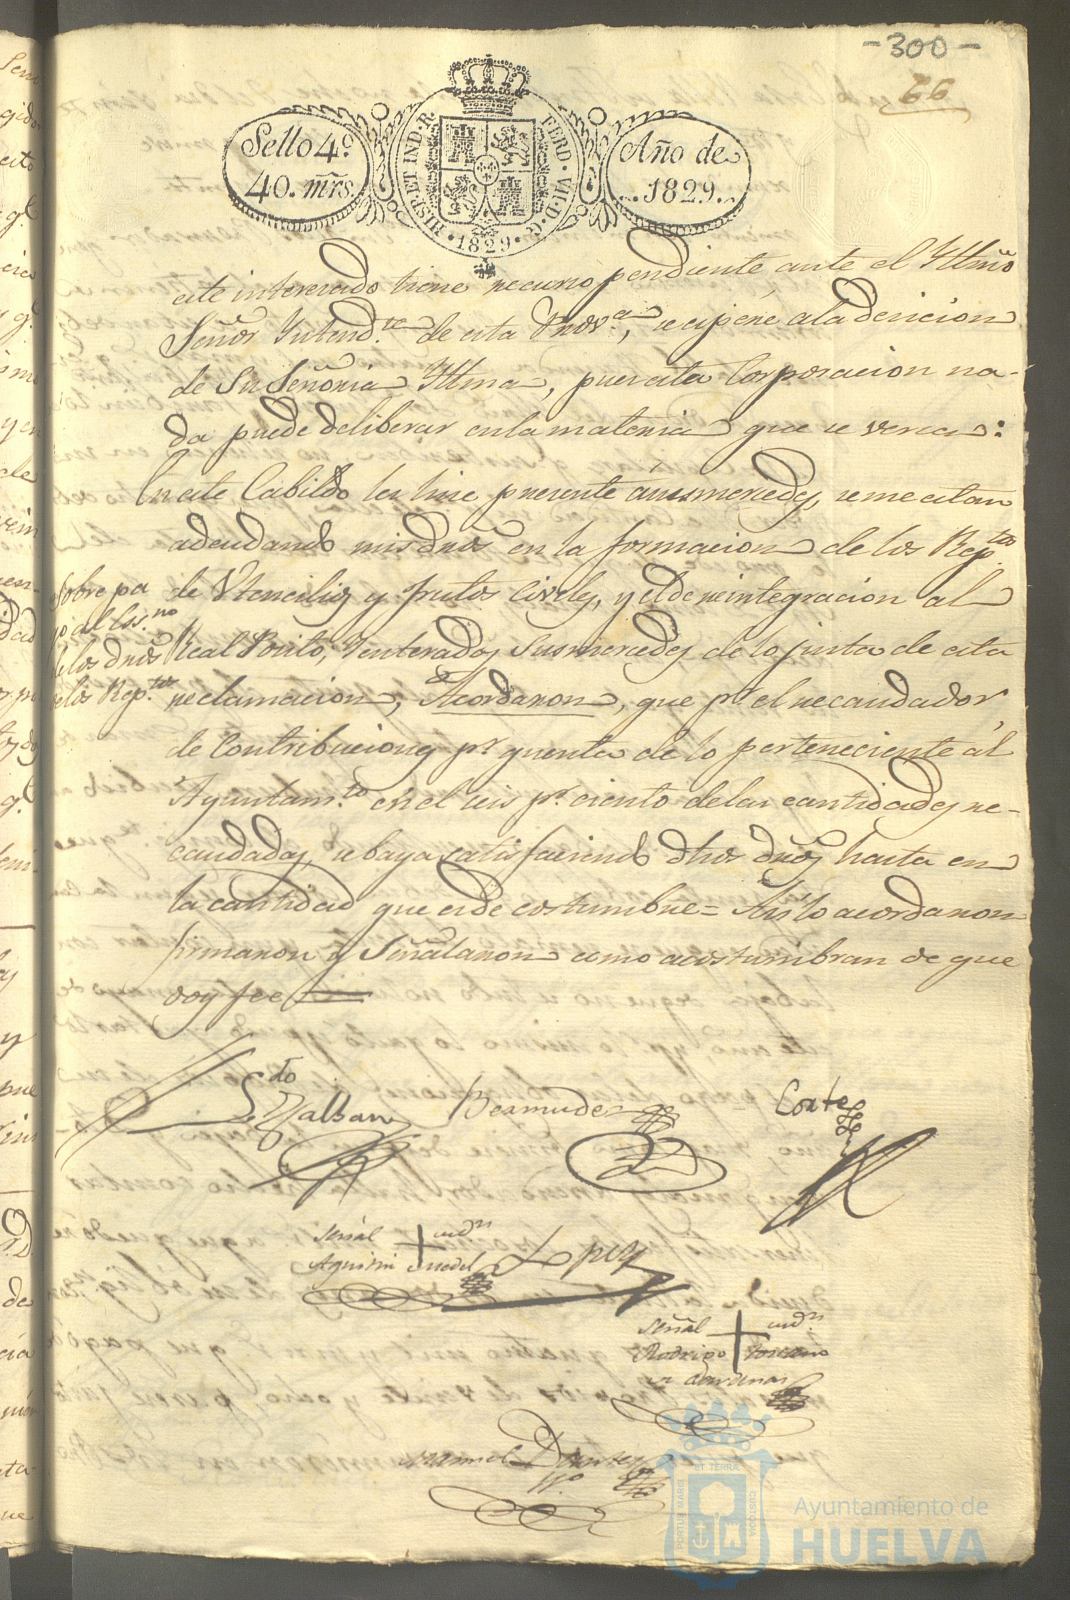 -300-
66
Sello 4.º
40. mrs.
HISP. ET IND. R.
FERD. VII. D. G.
1829
Año de
1829.
este interesado tiene recurso pendiente, ante el Yltmô
Señor Yntend.te de esta Prov.a, se espere a la decicion
de Su Señoria Yltma, pues esta Corporacion na-
da puede deliberar en la materia que se versa:
En este Cabildo les hice presente a susmercedes, se me estan
adeudando mis dros en la formacion de los Rep.tos
de Utencilios y frutos Civiles, y el de reintegracion al
Real Posito, Y enterados susmercedes de lo justa de esta
reclamacion, Acordaron, que p.r el recaudador
de Contribuciones p.r quenta de lo perteneciente ál
Ayuntam.to en el seis p.r ciento de las cantidades re-
caudadas, se baya satisfaciendo dhos dros hasta en
la cantidad que es de costumbre = Asi lo acordaron
firmaron y Señalaron como acostumbran de que
doy fee
Sobre pa
go al Ess.no
de los dros
de los Rep.tos
L.do Nalban
Bermudez
Corte
Señal + de
Agustin
Lopez
Señal + de
Rodrigo Toscano
Manuel Duartes
PORTUS MARIS
ET TERRÆ
CUSTODIA
Ayuntamiento de
HUELVA